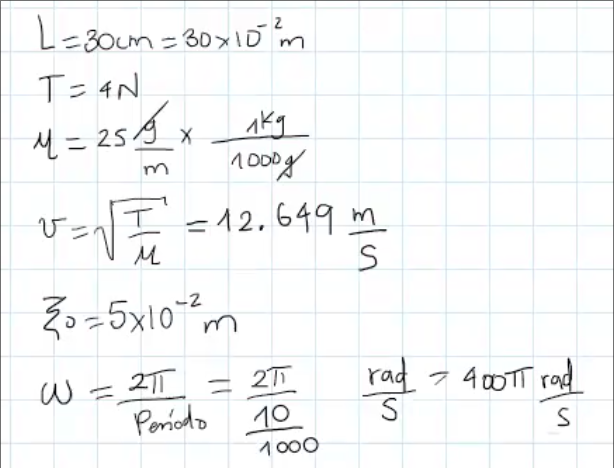 L = 30cm = 30x10⁻² m
T = 4N
μ = 25 g/m x 1Kg/1000g
v = √(T/μ) = 12.649 m/s
ξ₀ = 5x10⁻² m
ω = 2π/Período = 2π/(10/1000) rad/s = 400π rad/s